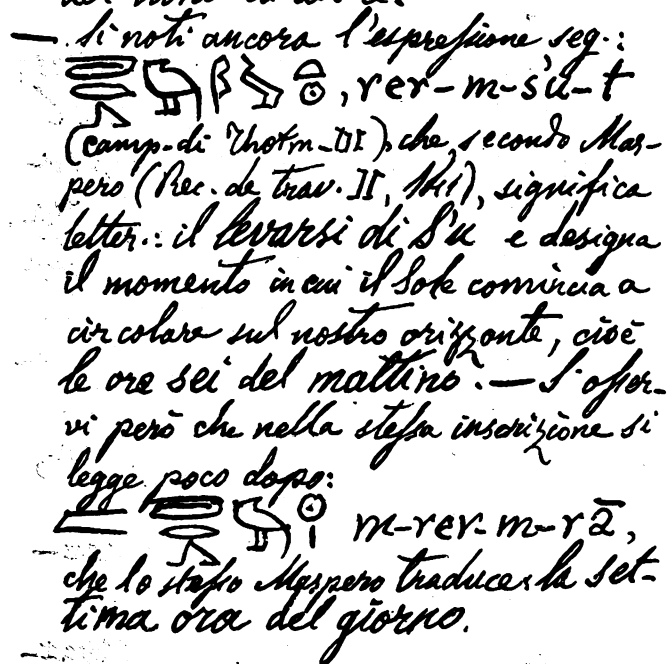 — Si noti ancora l'espressione seg.:
, rer-m-s'u-t
(camp. di Thotm. III), che, secondo Mas-
pero (Rec. de trav. II, ), significa
letter.: il levarsi di S'u e designa
il momento in cui il Sole comincia a
circolare sul nostro orizzonte, cioè
le ore sei del mattino. — S'osser-
vi però che nella stessa inscrizione si
legge poco dopo:
m-rer-m-rā,
che lo stesso Maspero traduce: la set-
tima ora del giorno.